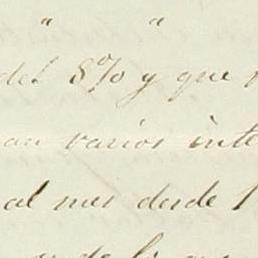 " "
del 8% y que
an varios inte
al mes desde 1
de